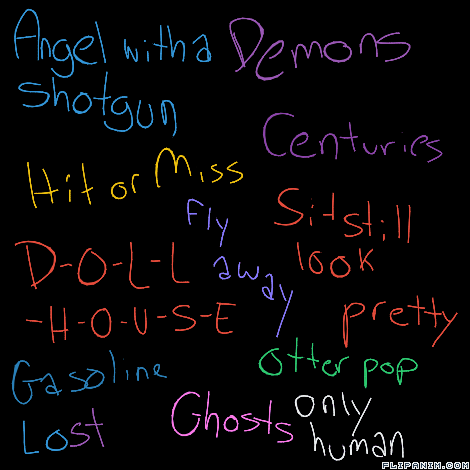 Angel with a
Shotgun
Demons
Centuries
Hit or Miss
Fly
away
Sit still
look
pretty
D-O-L-L
-H-O-U-S-E
Otter pop
Gasoline
Lost
Ghosts
only
human
FLIPANIM.COM